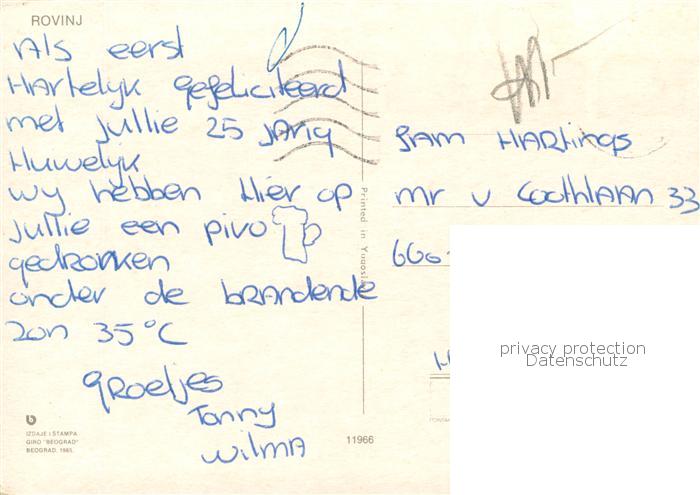 ROVINJ
Als eerst
Hartelyk gefeliciteerd
met jullie 25 jarig
Huwelyk
wy hebben Hier op
jullie een pivo
gedronken
onder de brandende
zon 35°C
groetjes
Tonny
Wilma
fam Hartings
mr v Coothlaan 33
660
H
Printed in Yugosla
privacy protection
Datenschutz
IZDAJE I ŠTAMPA
GIRO "BEOGRAD"
BEOGRAD, 1985.
11966